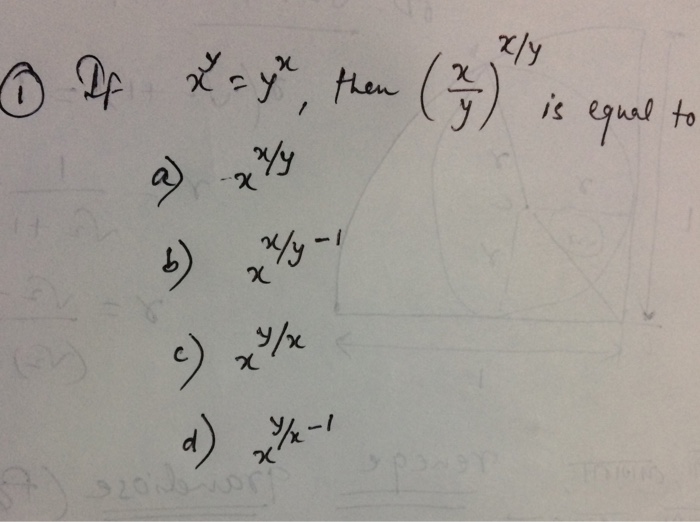 ① If x^y = y^x, then (x/y)^x/y is equal to
a) x^x/y
b) x^x/y-1
c) x^y/x
d) x^y/x-1